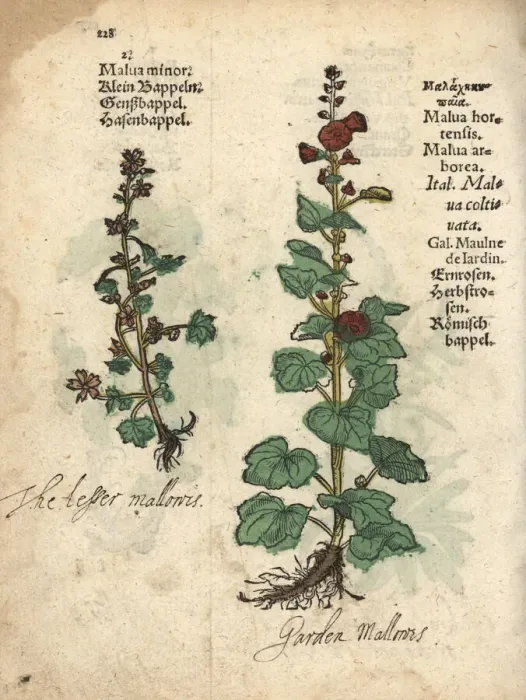 228
2.
Malua minor.
Klein Bappeln.
Genßbappel.
Hasenbappel.
Μαλάχη κη-
παία.
Malua hor-
tensis.
Malua ar-
borea.
Ital. Mal-
ua colti-
uata.
Gal. Maulue
de Iardin.
Ernrosen.
Herbstro-
sen.
Römisch
bappel.
The lesser mallowis.
Garden Mallowis.